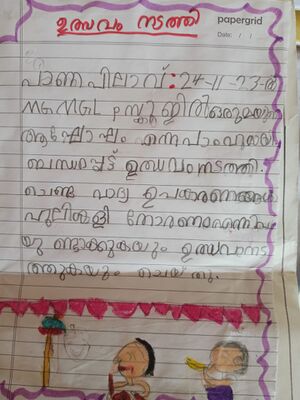 ഉത്സവം നടത്തി
papergrid
Date: / /
പാണപിലാവ്: 24-11-23-ൽ
MGMGLPസ്കൂളിൽഒരുമയുടെ
ആഘോഷം എന്ന പാഠവുമായി
ബന്ധപ്പെട്ട് ഉത്സവംനടത്തി.
ചെണ്ട വാദ്യ ഉപകരണങ്ങൾ
പുലികളി
യു ണ്ടാക്കുകയും ഉത്സവംനട
ത്തുകയും ചെയ്തു.